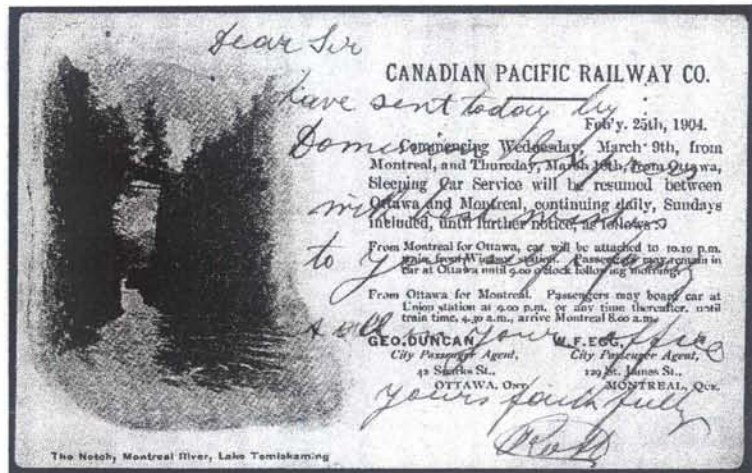 Dear Sir
CANADIAN PACIFIC RAILWAY CO.
have sent today by
Feb'y. 25th, 1904.
Dominion Express
Commencing Wednesday, March 9th, from
Montreal, and Thursday, March 10th, from Ottawa,
Sleeping Car Service will be resumed between
Ottawa and Montreal, continuing daily, Sundays
included, until further notice, as follows:
with best wishes
From Montreal for Ottawa, car will be attached to 10.10 p.m.
train from Windsor station. Passengers may remain in
car at Ottawa until 9.00 o'clock following morning.
to your
From Ottawa for Montreal. Passengers may board car at
Union station at 9.00 p.m. or any time thereafter, until
train time, 4.30 a.m., arrive Montreal 8.00 a.m.
& all your office
GEO. DUNCAN, W. F. EGG,
City Passenger Agent, City Passenger Agent,
42 Sparks St., 129 St. James St.,
OTTAWA, Ont. MONTREAL, Que.
yours faithfully
The Notch, Montreal River, Lake Temiskaming